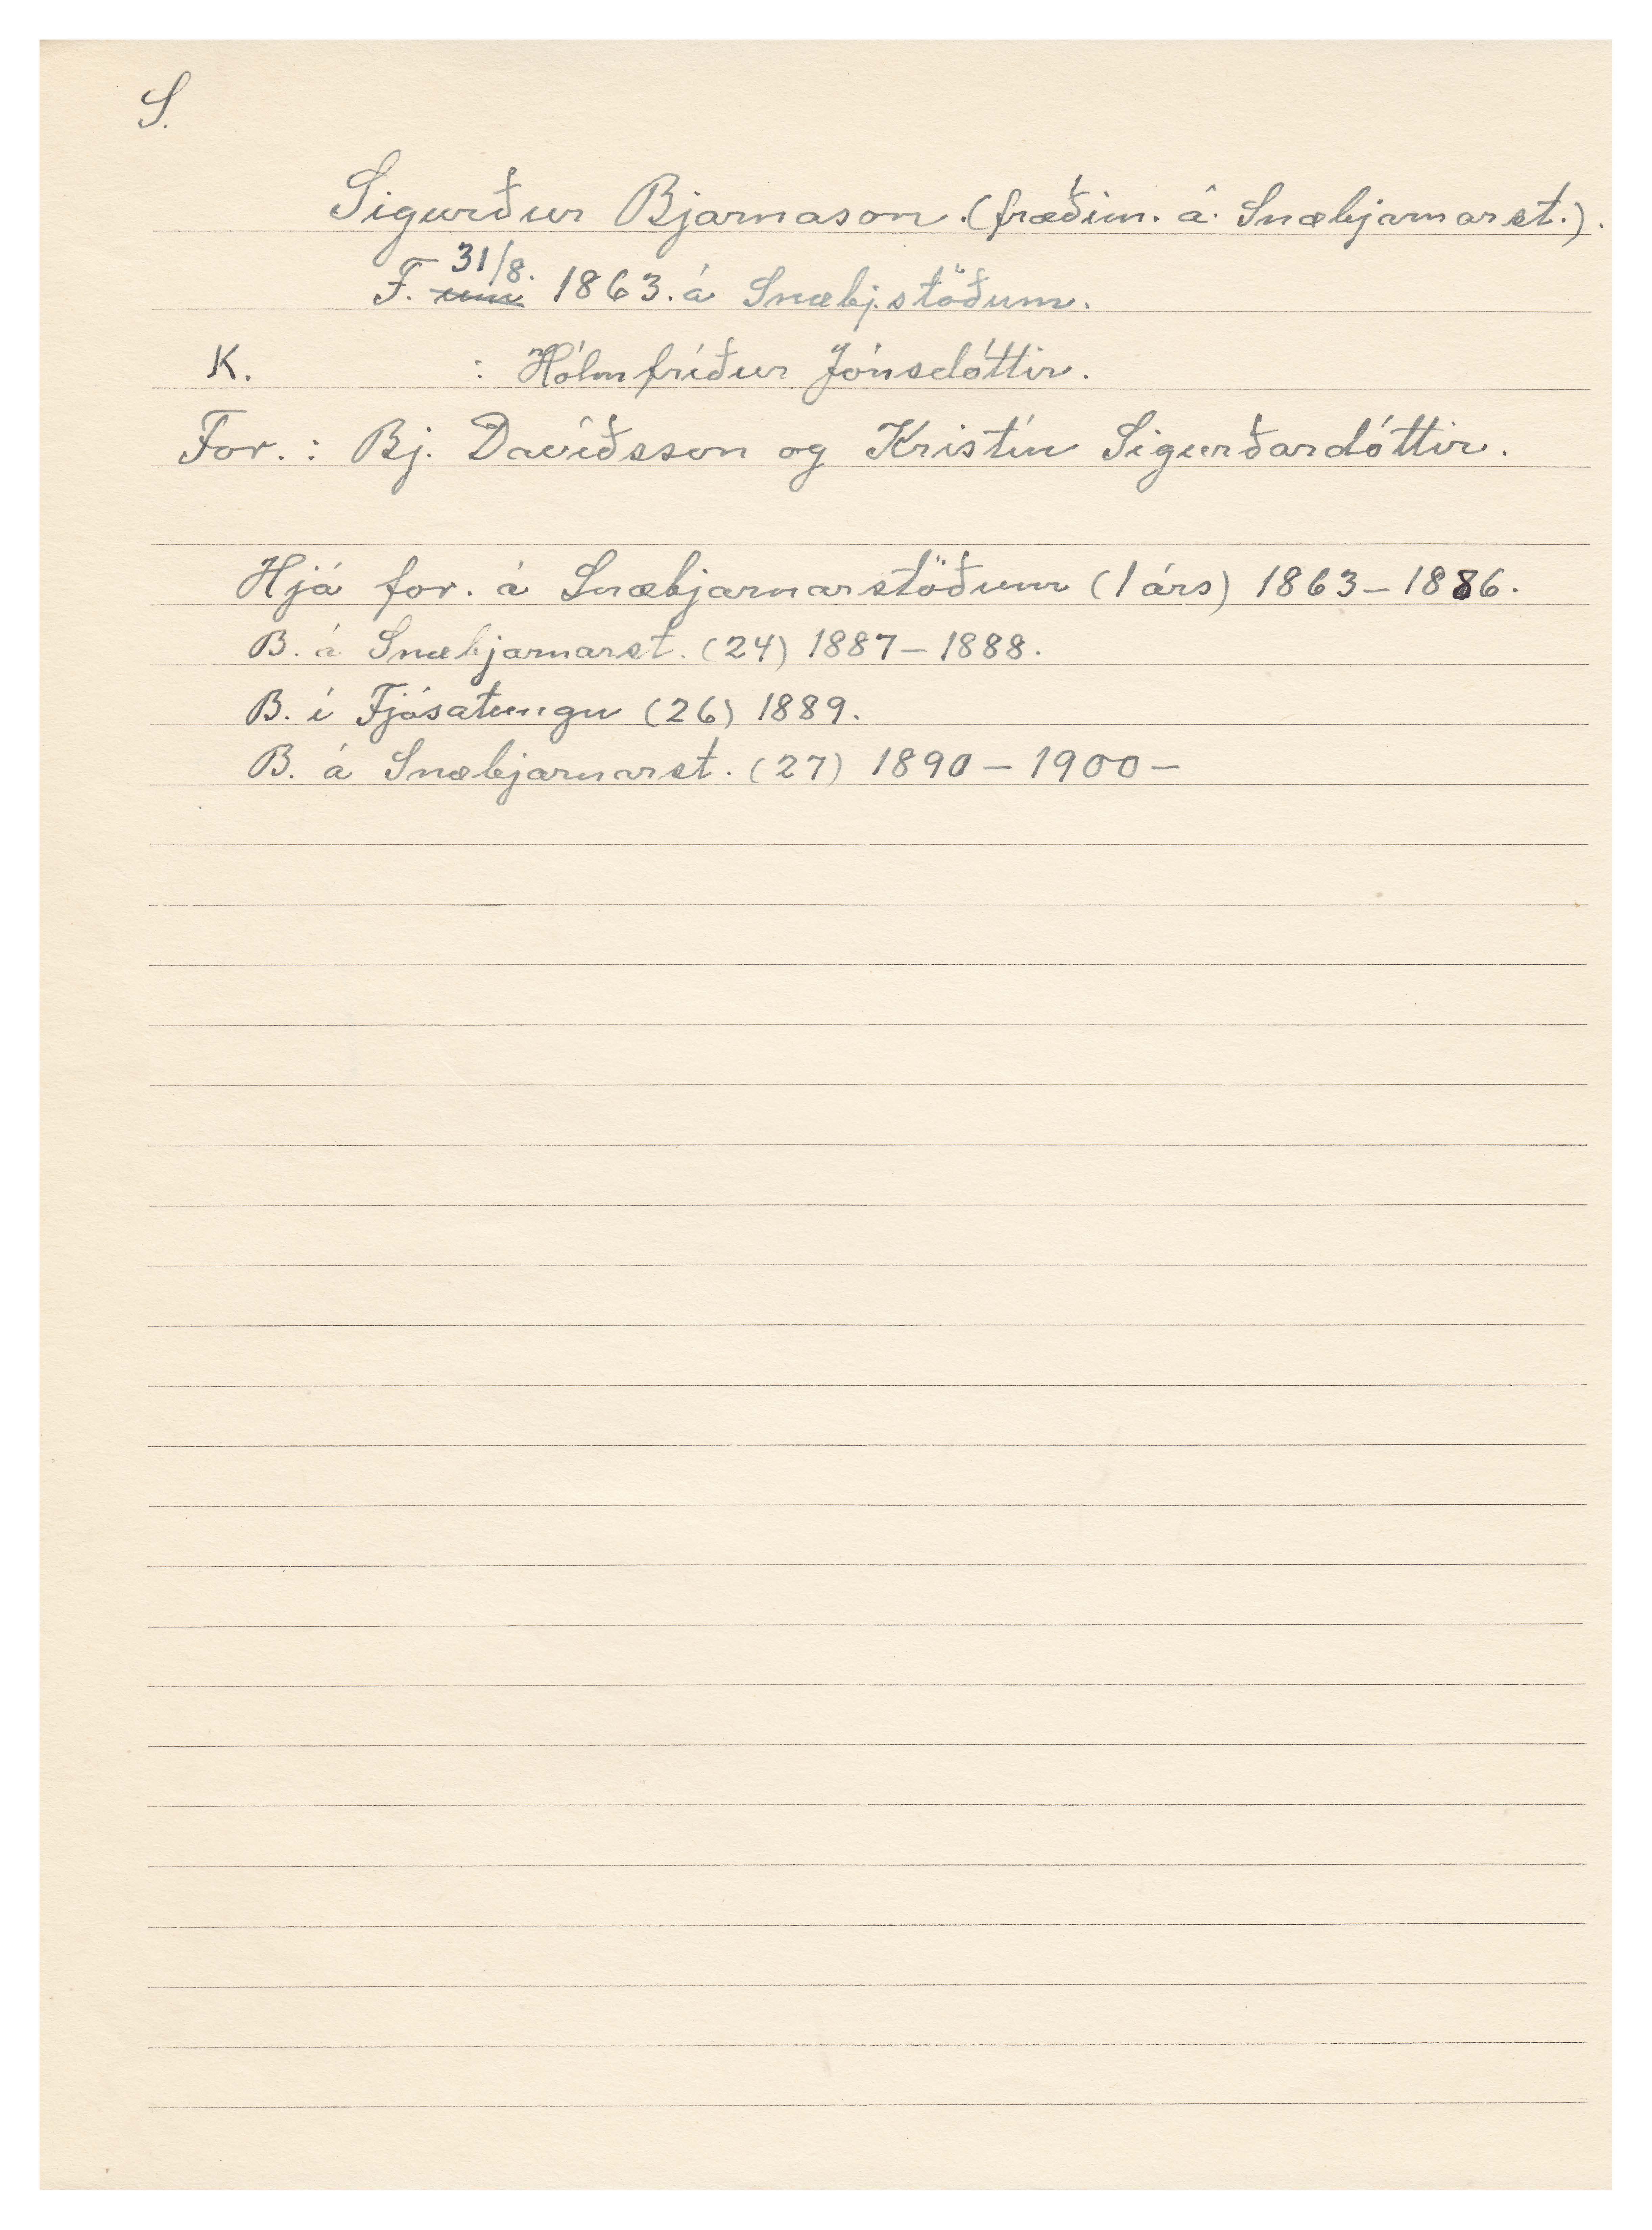 S.
Sigurður Bjarnason. (fræðim. á Snæbjarnarst.).
F. um 31/8. 1863. á Snæbj.stöðum.
K. : Hólmfríður Jónsdóttir.
For. : Bj. Davíðsson og Kristín Sigurðardóttir.
Hjá for. á Snæbjarnarstöðum (1 árs) 1863-1886.
B. á Snæbjarnarst. (24) 1887-1888.
B. í Fjósatungu (26) 1889.
B. á Snæbjarnarst. (27) 1890-1900-